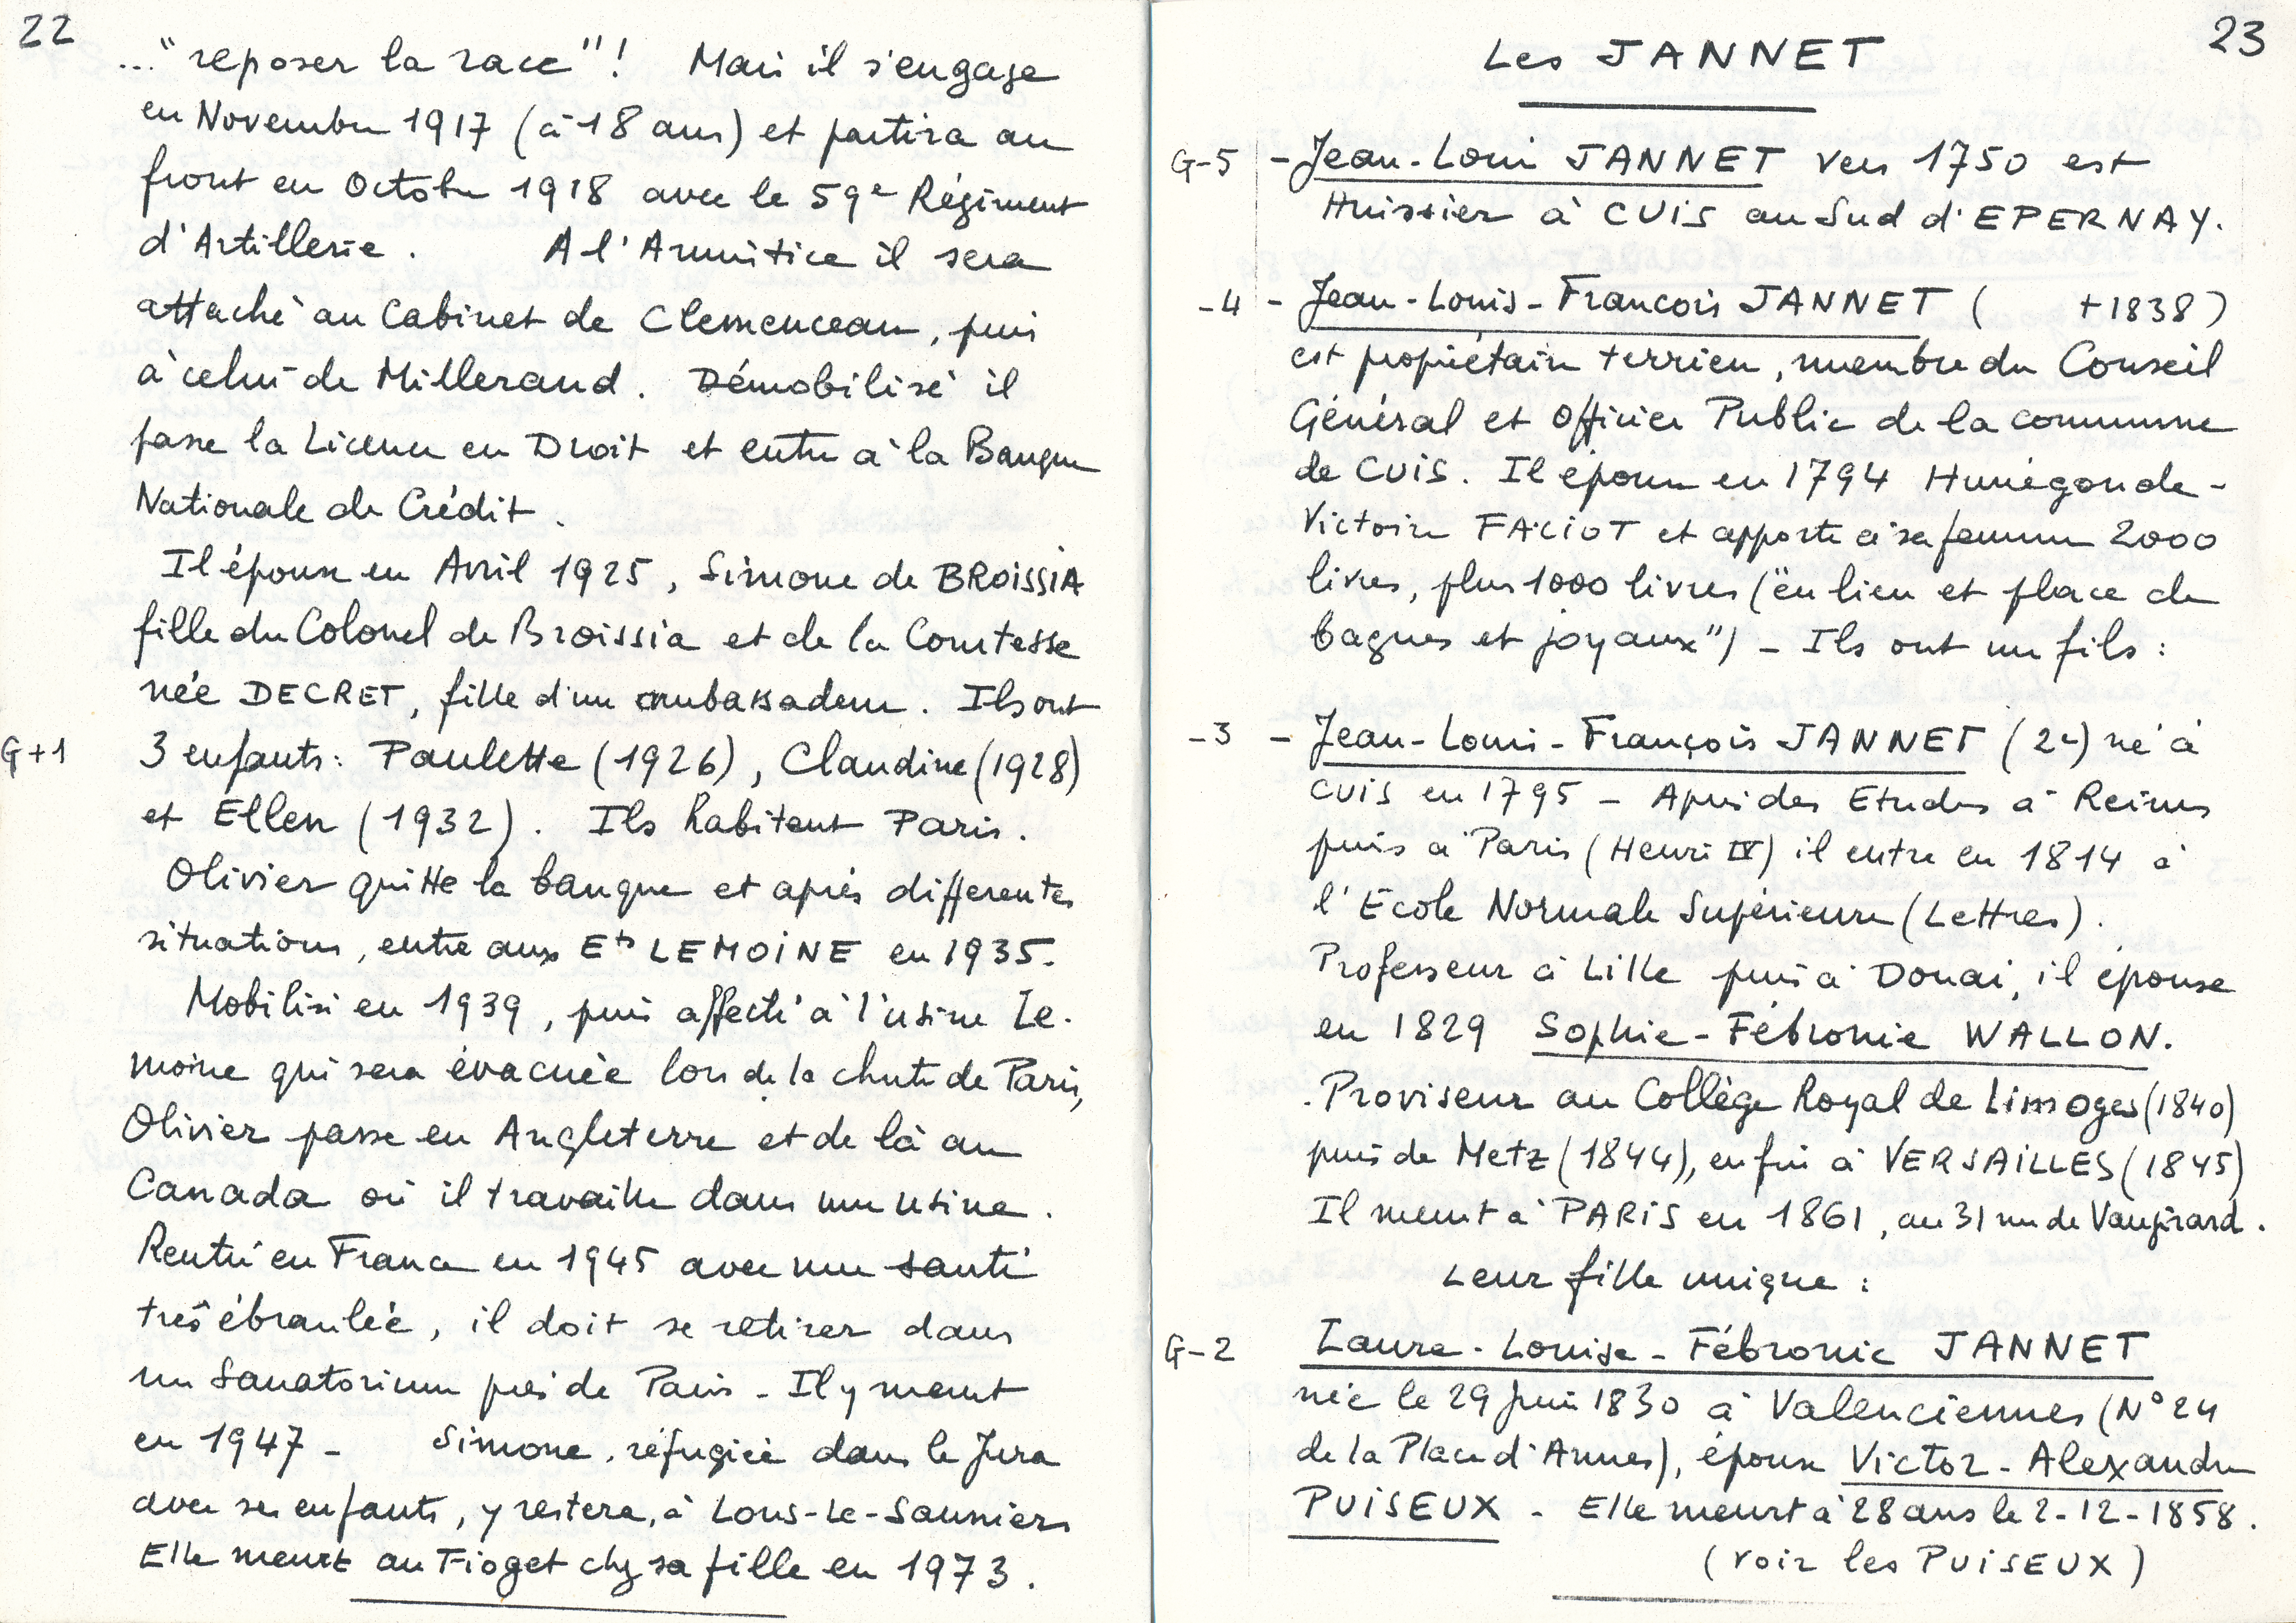 22
..." reposer la race"! Mais il s'engage
en Novembre 1917 (à 18 ans) et partira au
front en Octobre 1918 avec le 59e Régiment
d'Artillerie. A l'Armistice il sera
attaché au Cabinet de Clemenceau, puis
à celui de Millerand. Démobilisé il
passe la Licence en Droit et entre à la Banque
Nationale de Crédit.
Il épouse en Avril 1925, Simone de BROISSIA
fille du Colonel de Broissia et de la Comtesse
née DECRET, fille d'un ambassadeur. Ils ont
G+1 3 enfants: Paulette (1926), Claudine (1928)
et Ellen (1932). Ils habitent Paris.
Olivier quitte la banque et après differentes
situations, entre aux Ets LEMOINE en 1935.
Mobilisé en 1939, puis affecté à l'usine Le-
moine qui sera évacuée lors de la chute de Paris,
Olivier passe en Angleterre et de là au
Canada où il travaille dans une usine.
Rentré en France en 1945 avec une santé
très ébranlée, il doit se retirer dans
un Sanatorium près de Paris - Il y meurt
en 1947 - Simone, réfugiée dans le Jura
avec ses enfants, y restera, à Lons-Le-Saunier
Elle meurt au Fioget chez sa fille en 1973.
23
Les JANNET
G-5 - Jean-Louis JANNET vers 1750 est
Huissier à CUIS au Sud d'EPERNAY.
-4 - Jean-Louis-Francois JANNET ( +1838)
est propriétaire terrien, membre du Conseil
Général et Officier Public de la commune
de CUIS. Il épouse en 1794 Hunégonde-
Victoire FACIOT et apporte à sa femme 2000
livres, plus 1000 livres ("en lieu et place de
bagues et joyaux") - Ils ont un fils :
-3 - Jean-Louis-François JANNET (2e) né à
CUIS en 1795 - Après des Etudes à Reims
puis à Paris (Henri IV) il entre en 1814 à
l'Ecole Normale Supérieure (Lettres).
Professeur à Lille puis à Douai, il épouse
en 1829 Sophie-Fébronie WALLON.
. Proviseur au Collège Royal de Limoges (1840)
puis de Metz (1844), enfin à VERSAILLES (1845)
Il meurt à PARIS en 1861, au 31 rue de Vaugirard.
Leur fille unique :
G-2 Laure-Louise-Fébronie JANNET
née le 29 Juin 1830 à Valenciennes (N°24
de la Place d'Armes), épouse Victor-Alexandre
PUISEUX - Elle meurt à 28 ans le 2-12-1858.
(voir les PUISEUX)